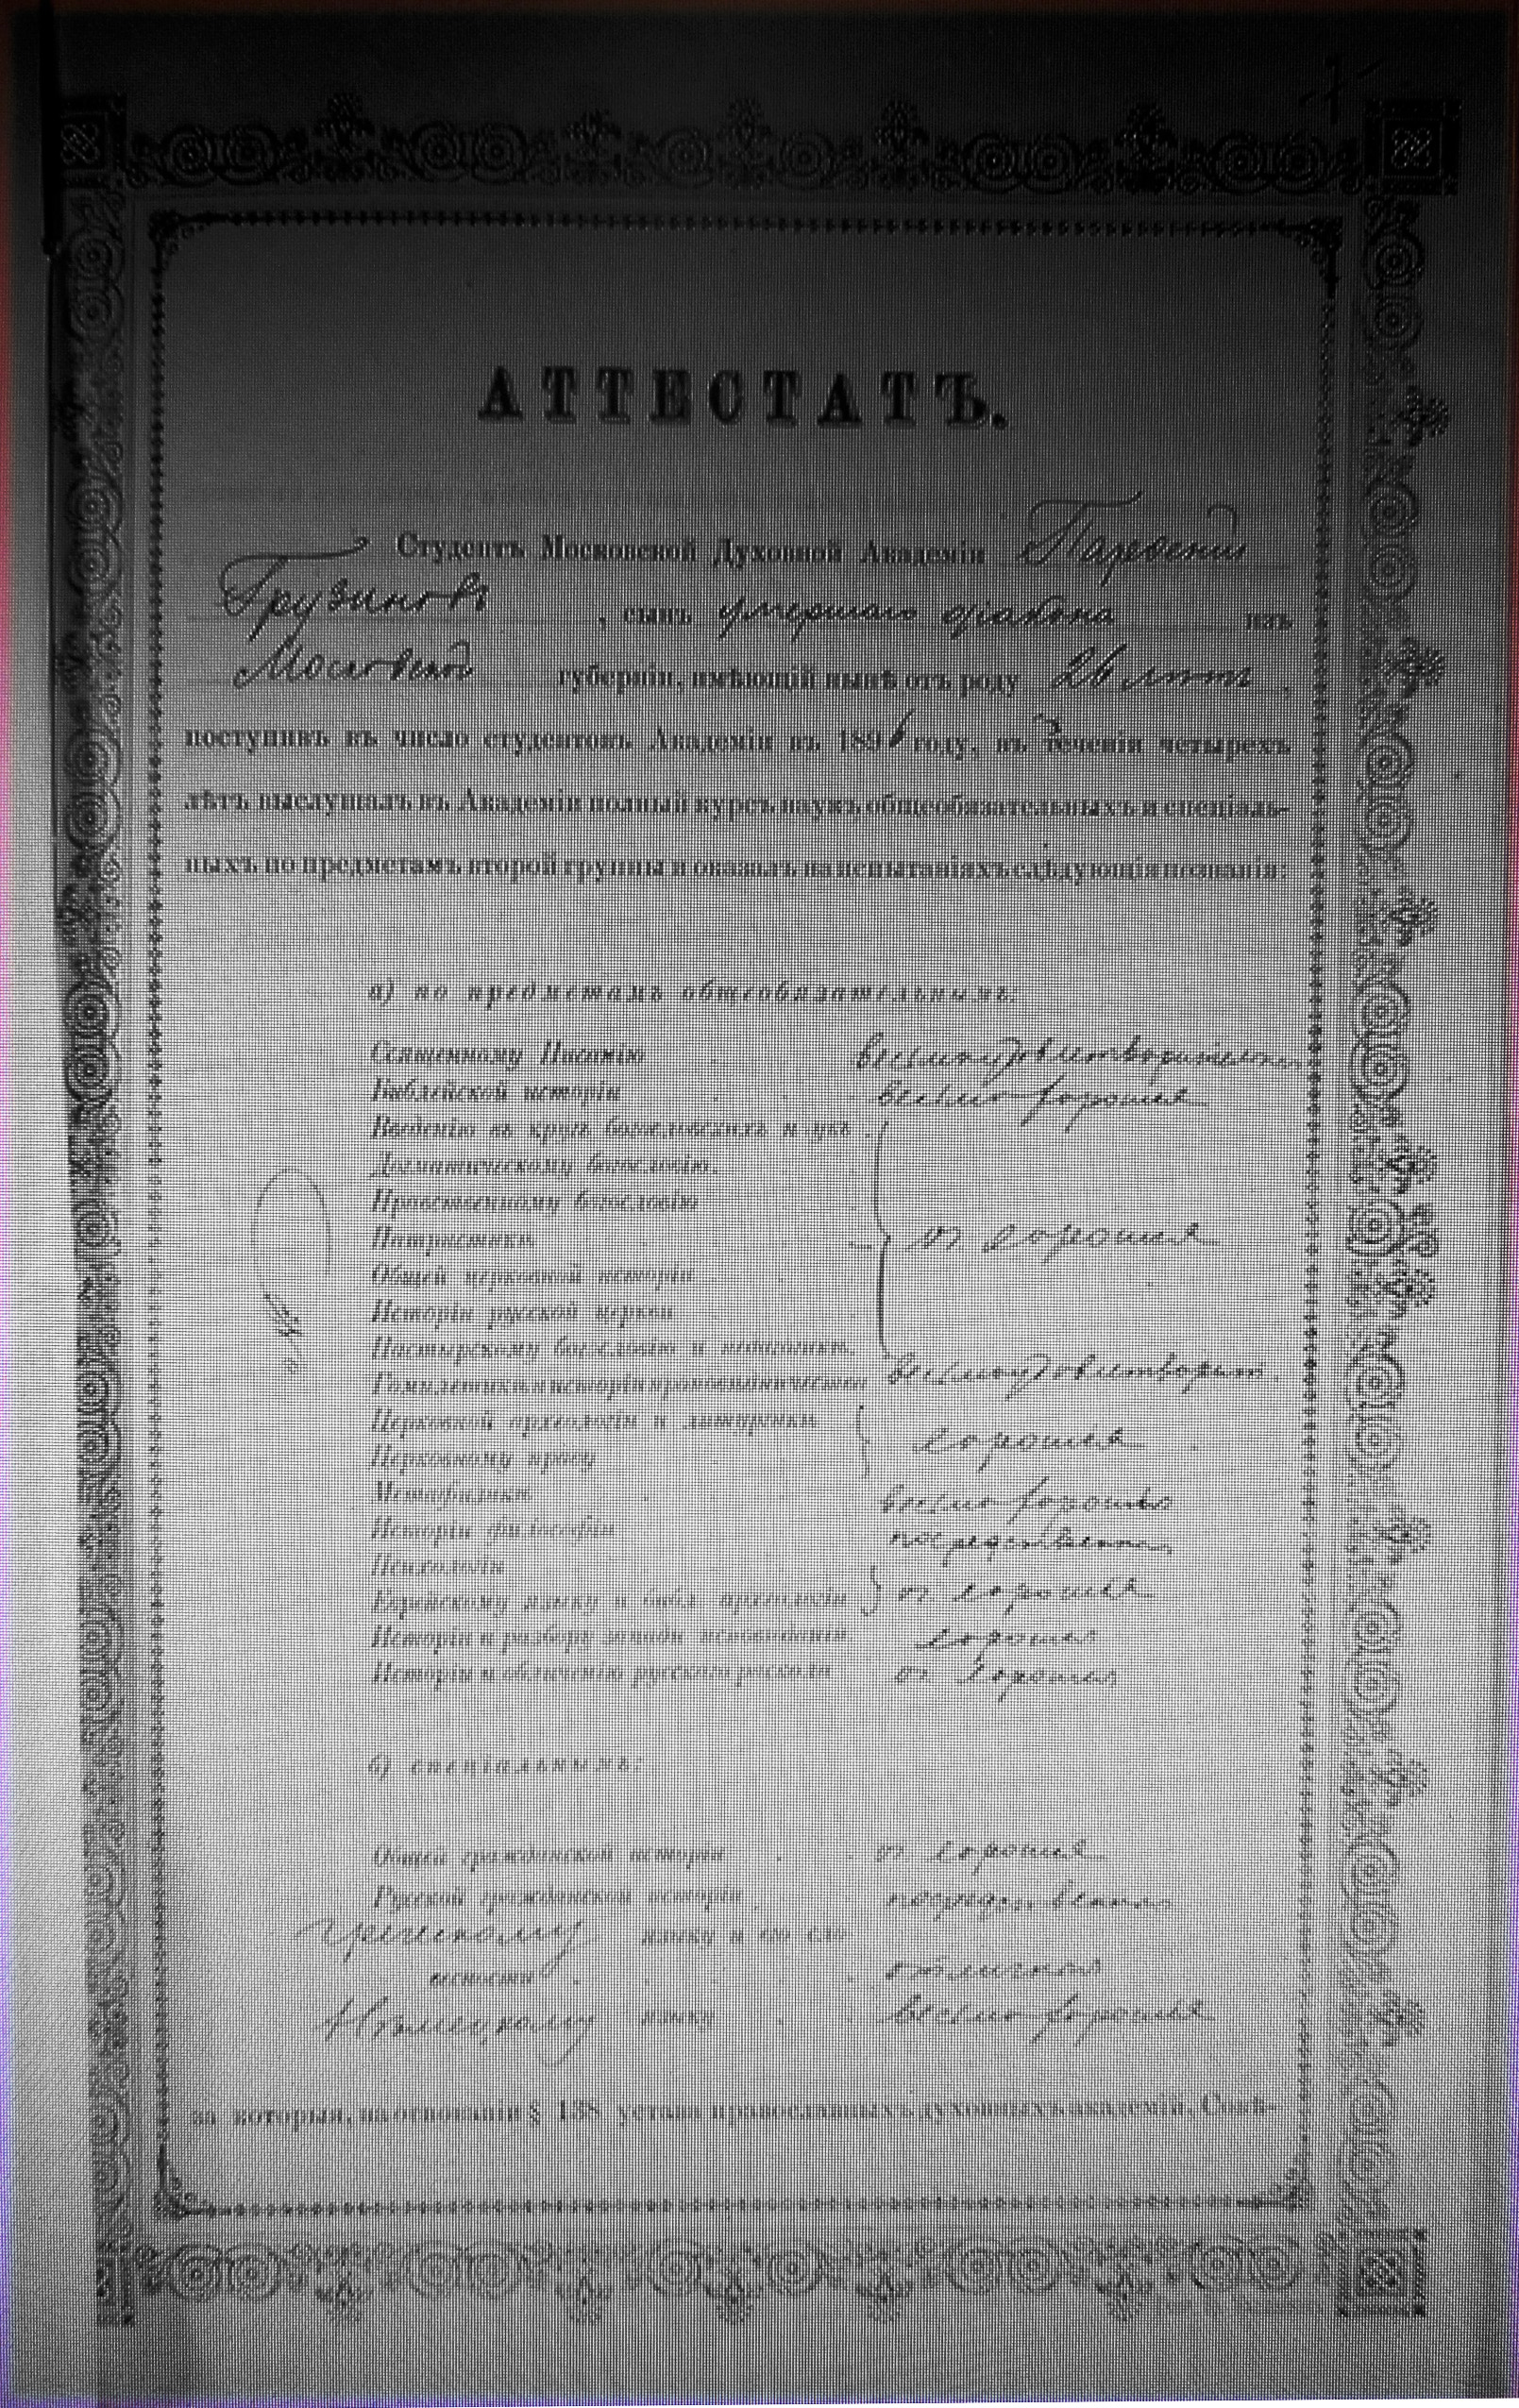 АТТЕСТАТЪ.
Студентъ Московской Духовной Академіи Парѳеній
Грузиновъ, сынъ умершаго діакона изъ
Московской губерніи, имѣющій нынѣ отъ роду 26 лѣтъ,
поступивъ въ число студентовъ Академіи въ 189 году, въ теченіи четырехъ
лѣтъ выслушалъ въ Академіи полный курсъ наукъ общеобязательныхъ и спеціаль-
ныхъ по предметамъ второй группы и оказалъ на испытаніяхъ слѣдующія познанія:
а) по предметамъ общеобязательнымъ:
Священному Писанію весьма удовлетворительныя
Библейской исторіи весьма хорошія
Введенію въ кругъ богословскихъ наукъ
Догматическому богословію.
Нравственному богословію
Патристикѣ от. хорошія
Общей церковной исторіи
Исторіи русской церкви
Пастырскому богословію и педагогикѣ.
Гомилетикѣ и исторіи проповѣдничества весьма удовлетворит.
Церковной археологіи и литургикѣ
Церковному праву хорошія
Метафизикѣ весьма хорошія
Исторіи философіи посредственныя
Психологіи
Еврейскому языку и библ. археологіи от. хорошія
Исторіи и разбору западн. исповѣданій хорошія
Исторіи и обличенію русскаго раскола от. хорошія
б) спеціальнымъ:
Общей гражданской исторіи от. хорошія
Русской гражданской исторіи посредственныя
Греческому языку и его сло-
весности отличныя
Нѣмецкому языку весьма хорошія
за которыя, на основаніи § 138 устава православныхъ духовныхъ академій, Совѣ-